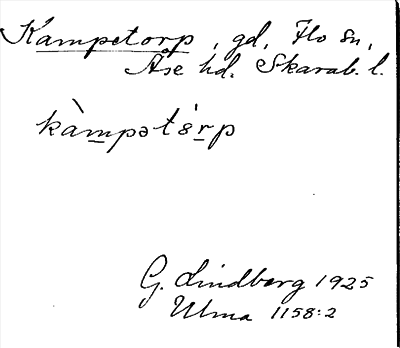 Kampetorp, gd, Flo sn,
Åse hd. Skarab. l.
kàmpətórp
G. Lindberg 1925
Ulma 1158:2